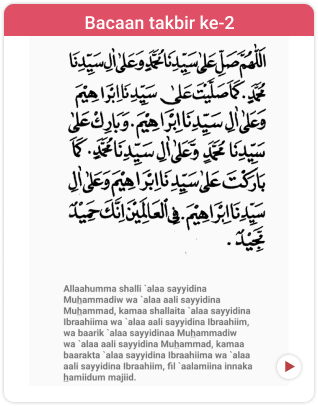 Bacaan takbir ke-2
اَللّٰهُمَّ صَلِّ عَلٰى سَيِّدِنَا مُحَمَّدٍ وَعَلٰى اٰلِ سَيِّدِنَا
مُحَمَّدٍ. كَمَا صَلَّيْتَ عَلٰى سَيِّدِنَا اِبْرَاهِيْمَ
وَعَلٰى اٰلِ سَيِّدِنَا اِبْرَاهِيْمَ. وَبَارِكْ عَلٰى
سَيِّدِنَا مُحَمَّدٍ وَّعَلٰى اٰلِ سَيِّدِنَا مُحَمَّدٍ. كَمَا
بَارَكْتَ عَلٰى سَيِّدِنَا اِبْرَاهِيْمَ وَعَلٰى اٰلِ
سَيِّدِنَا اِبْرَاهِيْمَ. فِى الْعَالَمِيْنَ اِنَّكَ حَمِيْدٌ
مَّجِيْدٌ .
Allaahumma shalli `alaa sayyidina
Muhammadiw wa `alaa aali sayyidina
Muhammad, kamaa shallaita `alaa sayyidina
Ibraahiima wa `alaa aali sayyidina Ibraahiim,
wa baarik `alaa sayyidinaa Muhammadiw
wa `alaa aali sayyidina Muhammad, kamaa
baarakta `alaa sayyidina Ibraahiima wa `alaa
aali sayyidina Ibraahiim, fil `aalamiina innaka
hamiidum majiid.